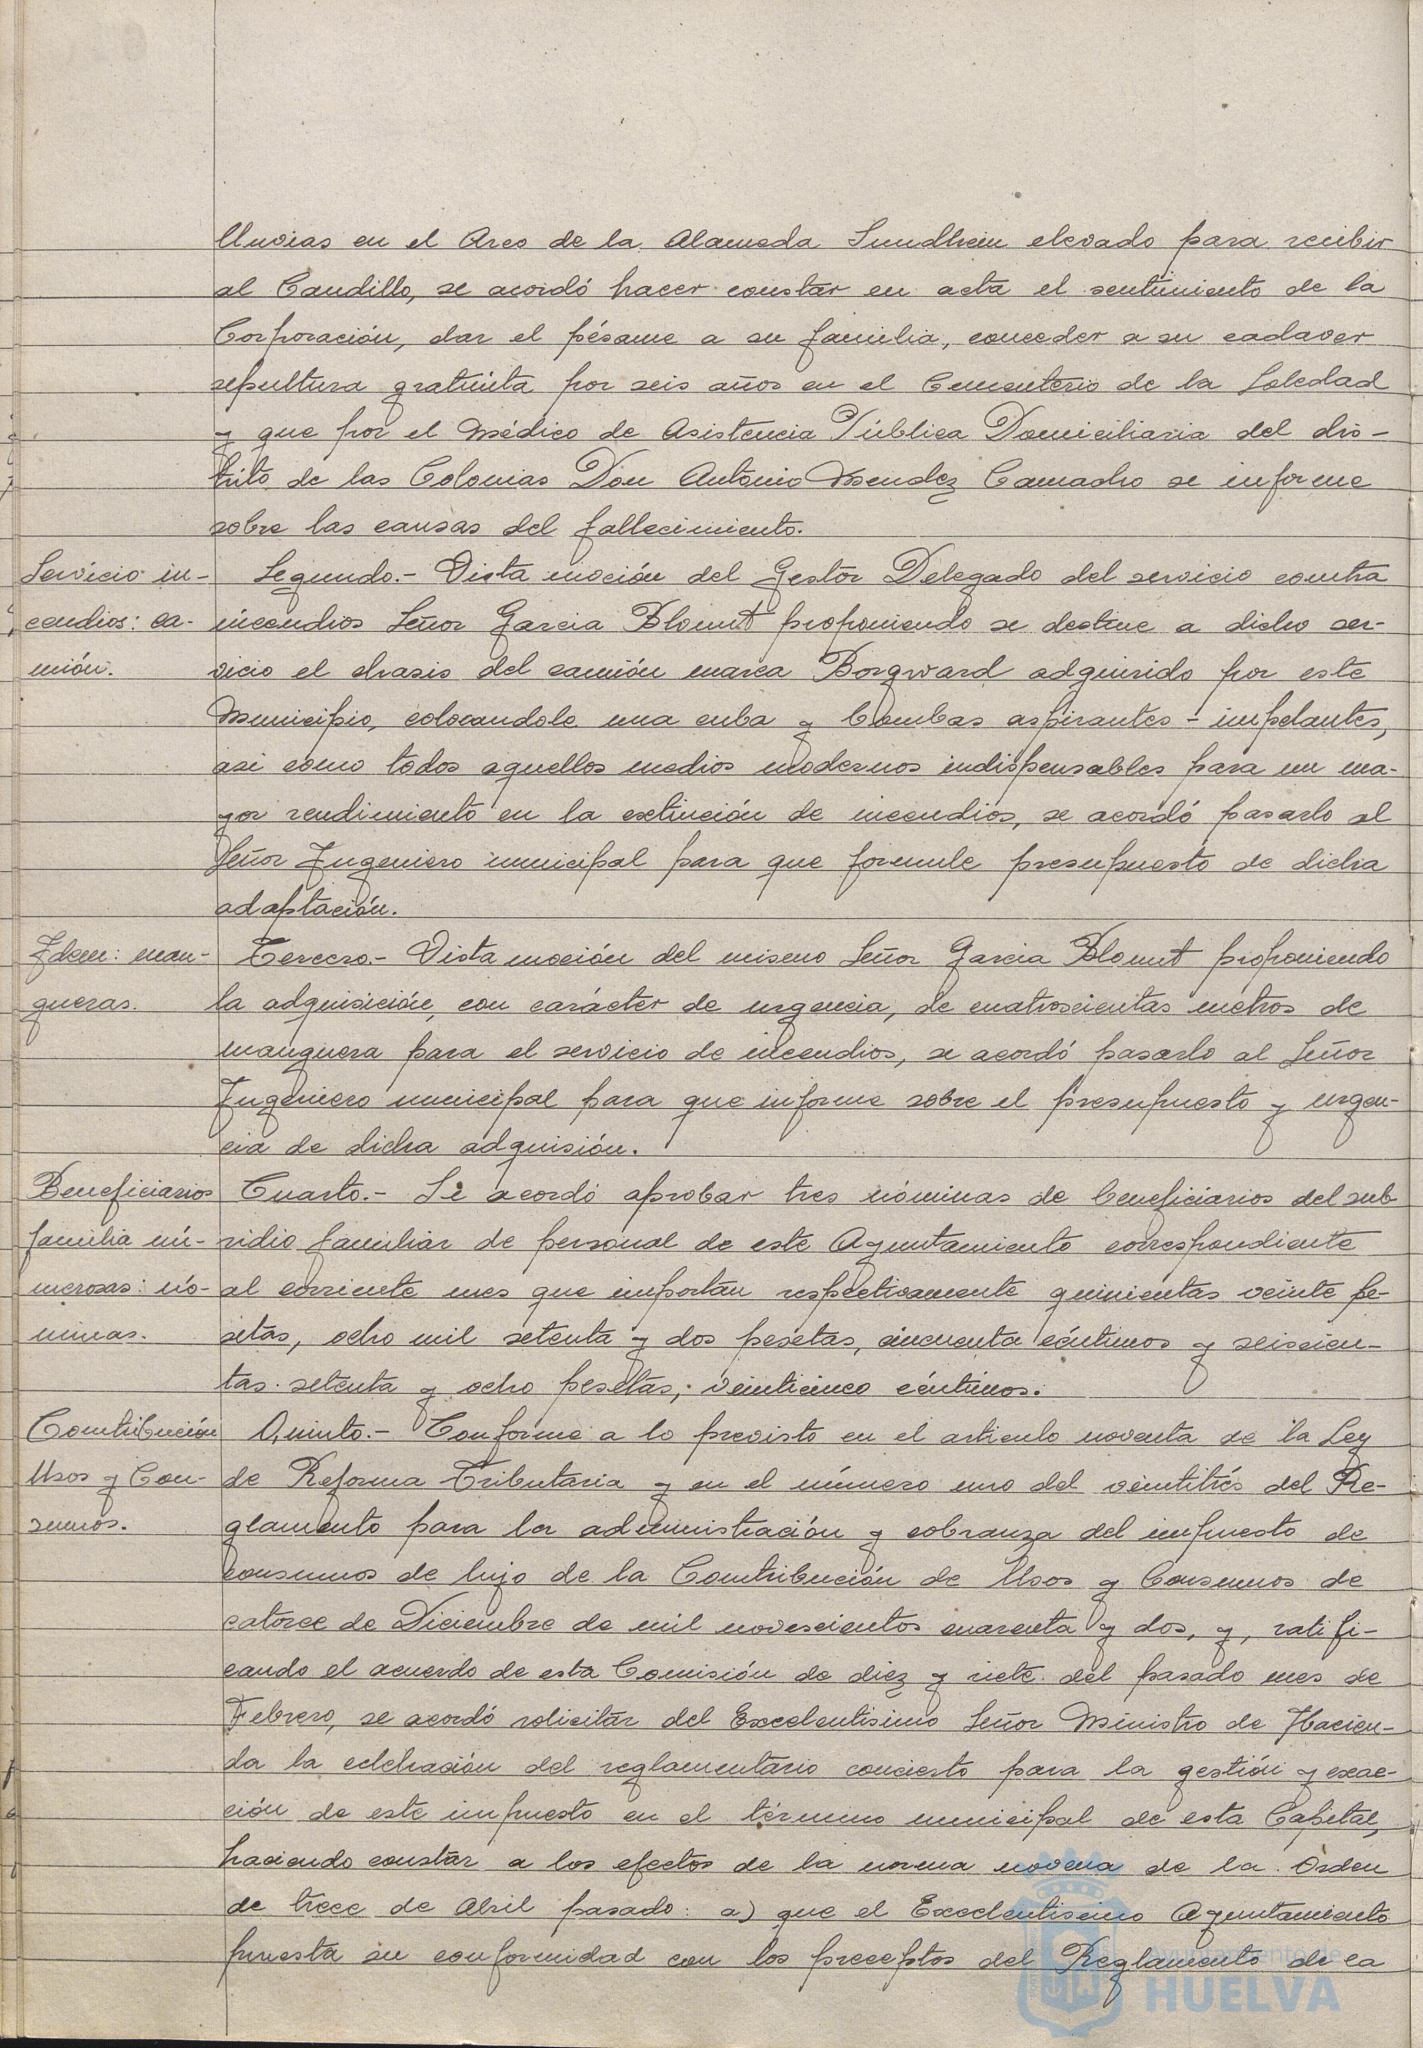 lluvias en el Arco de la Alameda Sundhein elevado para recibir
al Caudillo, se acordó hacer constar en acta el sentimiento de la
Corporación, dar el pésame a su familia, conceder a su cadaver
sepultura gratuita por seis años en el Cementerio de la Soledad
y que por el Médico de Asistencia Pública Domiciliaria del dis-
trito de las Colonias Don Antonio Mendez Camacho se informe
sobre las causas del fallecimiento.
Servicio in-
cendios: ca-
mión.
Segundo.- Vista moción del Gestor Delegado del servicio contra
incendios Señor Garcia Blomet proponiendo se destine a dicho ser-
vicio el chasis del camión marca Borgward adquirido por este
Municipio, colocandole una cuba y bombas aspirantes - impelantes,
asi como todos aquellos medios modernos indispensables para un ma-
yor rendimiento en la extinción de incendios, se acordó pasarlo al
Señor Ingeniero municipal para que formule presupuesto de dicha
adaptación.
Idem: man-
gueras.
Tercero.- Vista moción del mismo Señor Garcia Blomet proponiendo
la adquisición, con carácter de urgencia, de cuatroscientas metros de
manguera para el servicio de incendios, se acordó pasarlo al Señor
Ingeniero municipal para que informe sobre el presupuesto y urgen-
cia de dicha adquisión.
Beneficiarios
familia nu-
merosas: nó-
minas.
Cuarto.- Se acordó aprobar tres nóminas de beneficiarios del sub-
sidio familiar de personal de este Ayuntamiento correspondiente
al corriente mes que importan respectivamente quinientas veinte pe-
setas, ocho mil setenta y dos pesetas, cincuenta céntimos y seiscien-
tas setenta y ocho pesetas, veinticinco céntimos.
Contribución
Usos y Con-
sumos.
Quinto.- Conforme a lo previsto en el articulo noventa de la Ley
de Reforma Tributaria y en el número uno del veintitrés del Re-
glamento para la administración y cobranza del impuesto de
consumos de lujo de la Contribución de Usos y Consumos de
catorce de Diciembre de mil novescientos cuarenta y dos, y, ratifi-
cando el acuerdo de esta Comisión de diez y siete del pasado mes de
Febrero, se acordó solicitar del Excelentisimo Señor Ministro de Hacien-
da la celebración del reglamentario concierto para la gestión y exac-
ción de este impuesto en el término municipal de esta Capital,
haciendo constar a los efectos de la norma novena de la Orden
de trece de Abril pasado: a) que el Excelentisimo Ayuntamiento
presta su conformidad con los preceptos del Reglamento de la
Ayuntamiento de
HUELVA